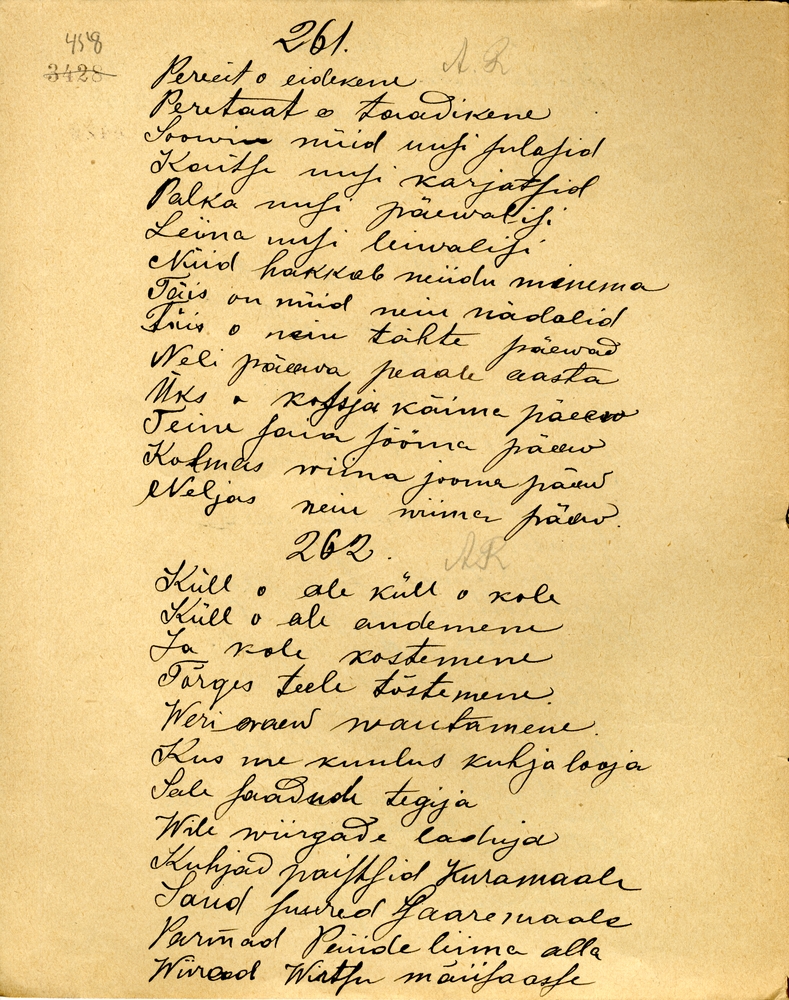 458
3428
261.
A. R
Pereeit o eidekene
Peretaat o taadikene
Soowin nüid uusi sulasid
Kaitse uusi karjatsid
Palka uusi päewalisi
Leina uusi leiwalisi
Nüid hakkab neiidu minema
Täis on nüid neiu nädalid
Täis o neiu tähte päewad
Neli päewa peaale aasta
Üks o kossja käima päew
Teine saia sööma päew
Kolmas wiina jooma päew
Neljas neiu wiima päew.
262.
AR
Küll o ale küll o kole
Küll o ale andemene
Ja kole kostemene
Tõrges teele tõstemene
Weri waew wautamene.
Kus me kuulus kuhja looja
Sale saadude tegija
Wile wiirgade laduja
Kuhjad paistsid Kuramaale
Saud suured Saaremaale
Parmad Peiide liina alla
Wiirand Wirtsu mäiisaasse